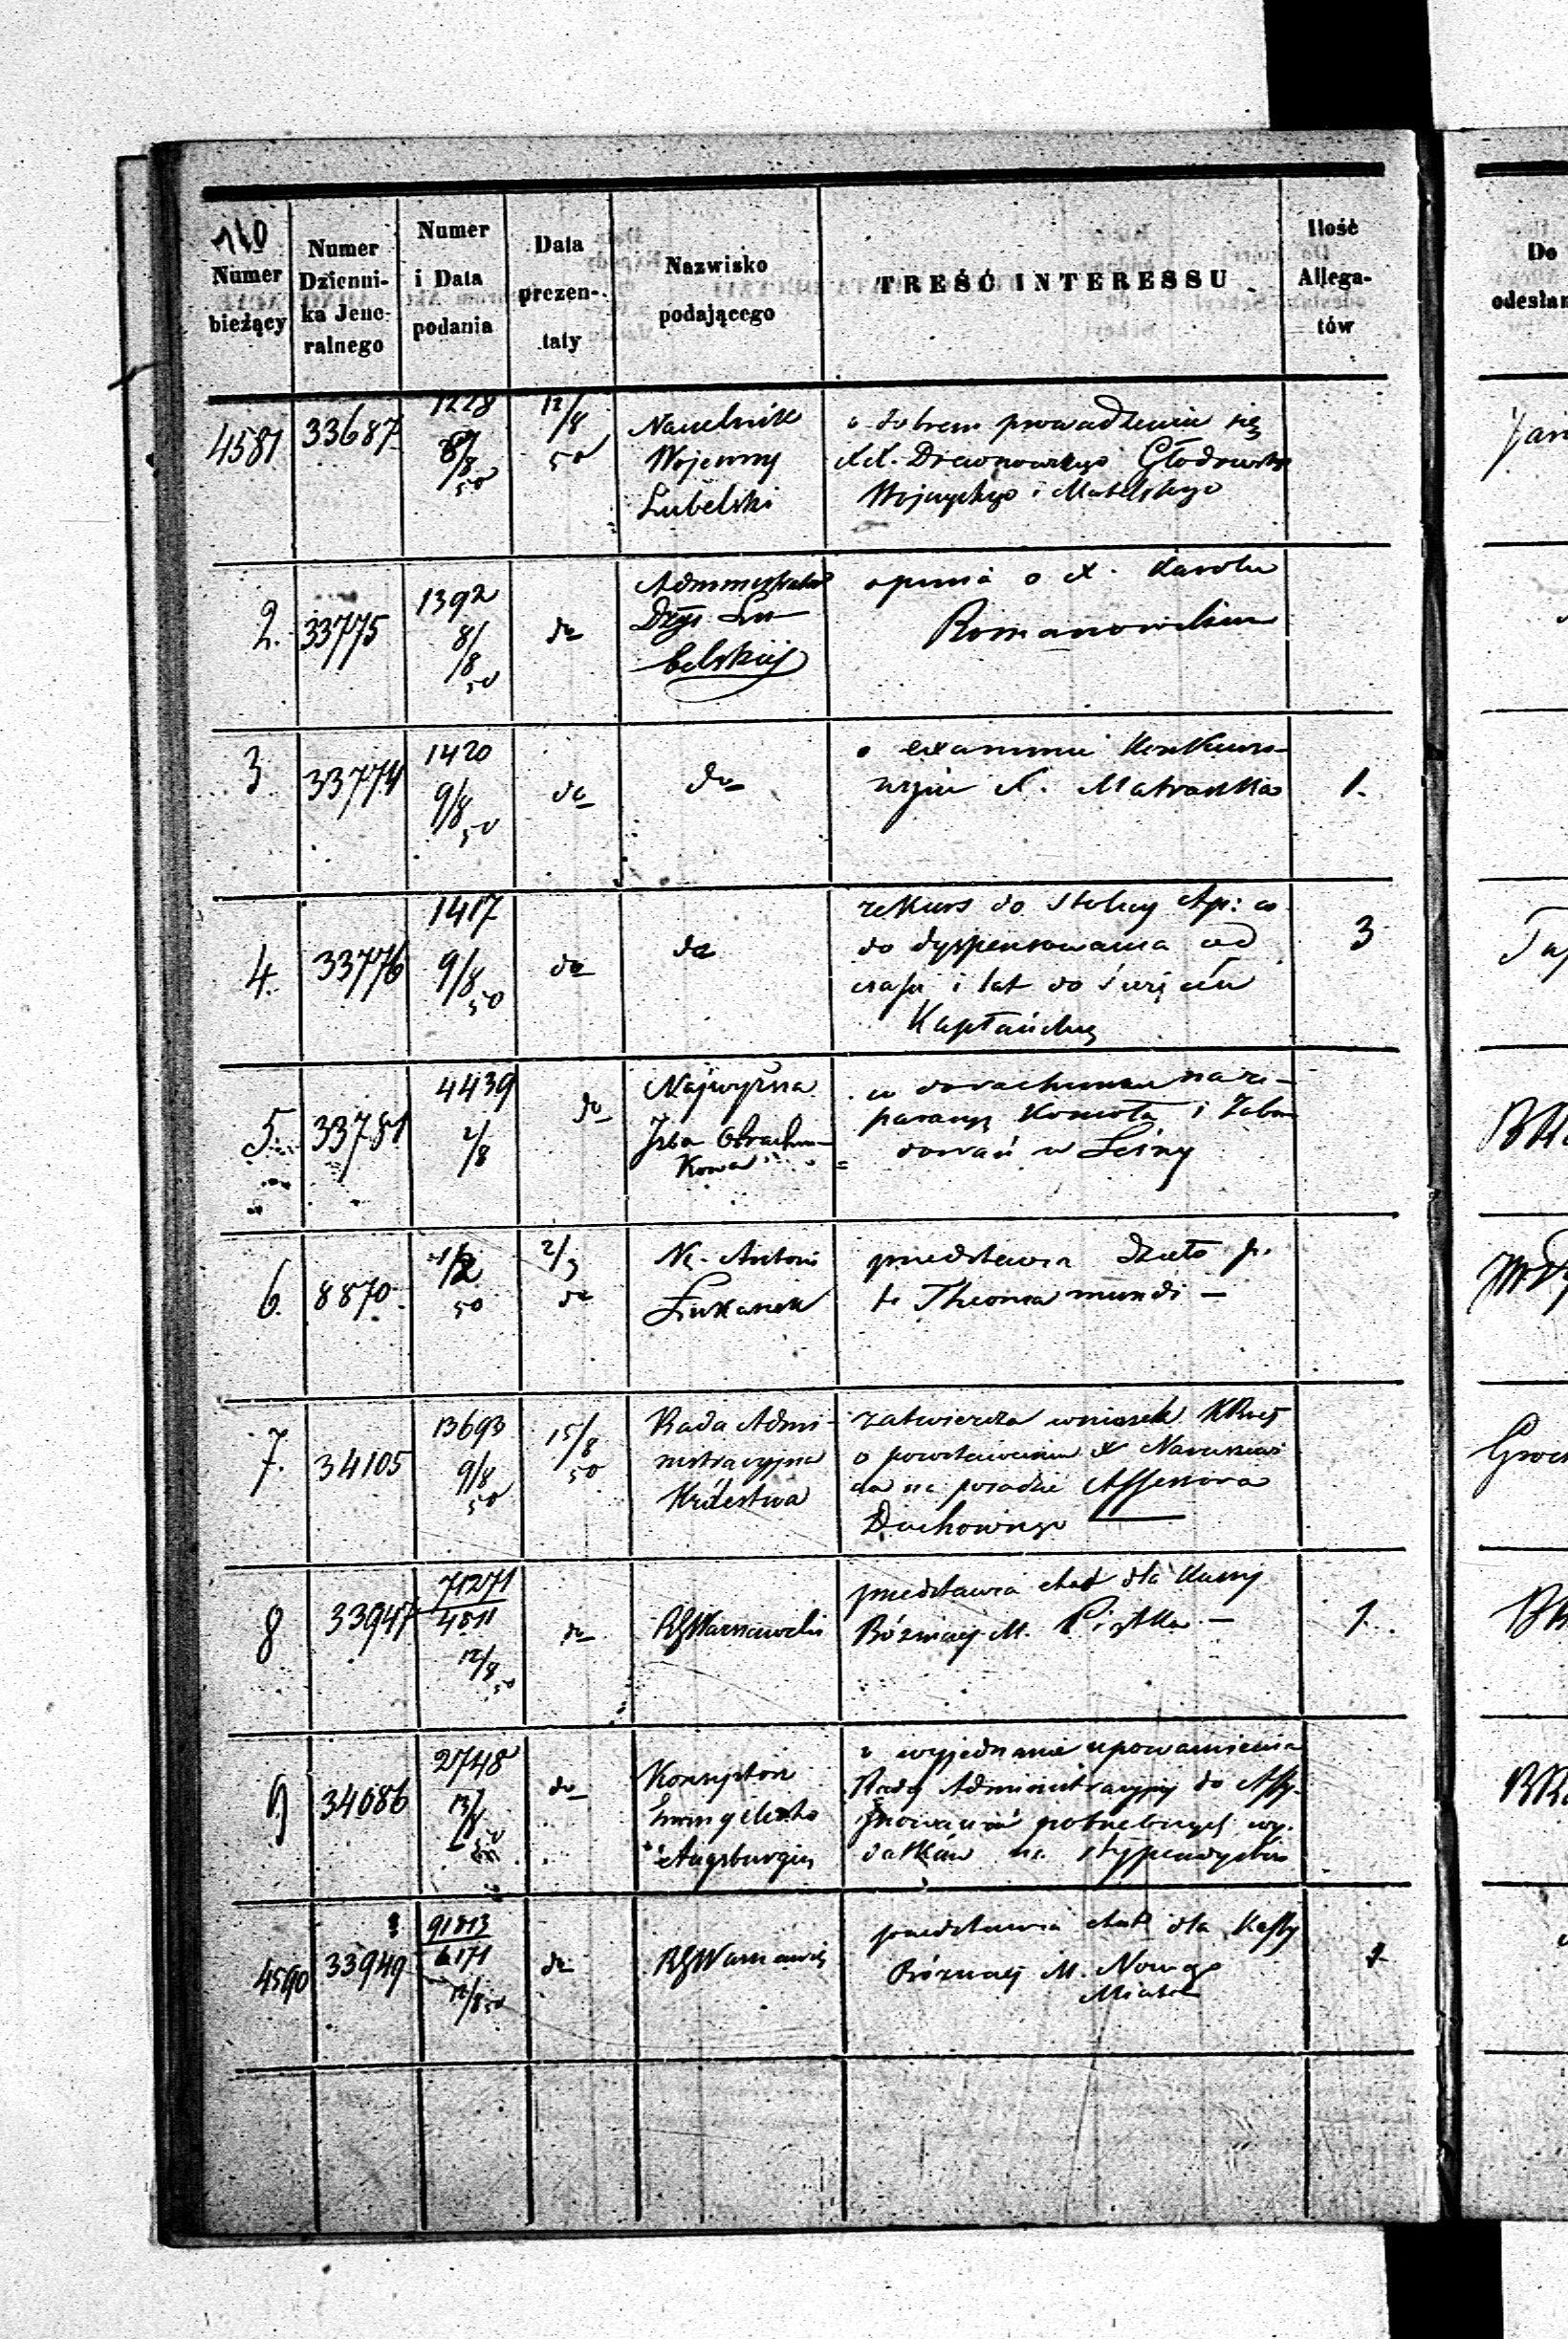 140
Numer
bieżący
Numer
Dzienni-
ka Jene-
ralnego
Numer
i Data
podania
Data
prezen-
taty
Nazwisko
podającego
TREŚĆ INTERESSU
Ilość
Allega-
tów
Do
odesłan
4581 33687 1228 8/8 50 12/8 50
Naczelnik
Wojenny
Lubelski
o dobrem prowadzeniu się
XX. Drewnowskiego Głodowskiego
Wojcickiego i
2. 33775 1392 8/8 50 do
Administrator
Dyec. Lu-
belskiej
opinia o X. Karolu
Romanowskim
3 33774 1420 9/8 50 do do
o examinie konkurso-
wym X. 1.
4. 33776 1417 9/8 50 do do
rekurs do Stolicy Ap: co
do dyspensowania od
czasu i lat do święceń
Kapłańskich
3
5. 33781 4439 2/8 do
Najwyższa
Izba Obrachun-
kowa
w dorachunku na re-
paracyę Kościoła i Zabu
dowań w Leśny
6. 8870 1/2 50 2/3 do
X. Antoni
przedstawia Dzieło p.
t. mundi —
7. 34105 13693 9/8 50 15/8 50
Rada Admi-
nistracyjna
Królestwa
zatwierdza wniosek
o X Naruszewi
cza na posadzie Assessora
Duchownego
8 33947 71271 4811 12/8 50 do
RG Warszawski
przedstawia etat dla Kassy
Bóżniczej M. Piątka — 1.
9 34086 2748 13/8 50 do
Konsystorz
Ewangelicko
Augsburgski
o wyjednanie upoważnienia
Rady Administracyjnej do Assy-
gnowania potrzebnych wy-
datków na stypendystów
4590 33949 91813 6171 12/8 50 do
RG Warszawski
przedstawia etat dla Kassy
Bóżniczej M. Nowego
Miasta